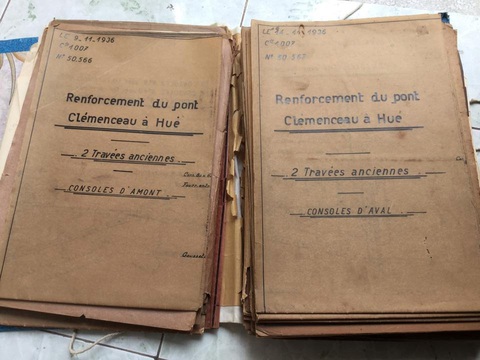 LE 9.11.1936
Cde 1007
N° 50.566
Renforcement du pont
Clémenceau à Hué
2 Travées anciennes
CONSOLES D'AMONT
Gousset
11.1936
1007
Renforcement du pont
Clémenceau à Hué
2 Travées anciennes
CONSOLES D'AVAL